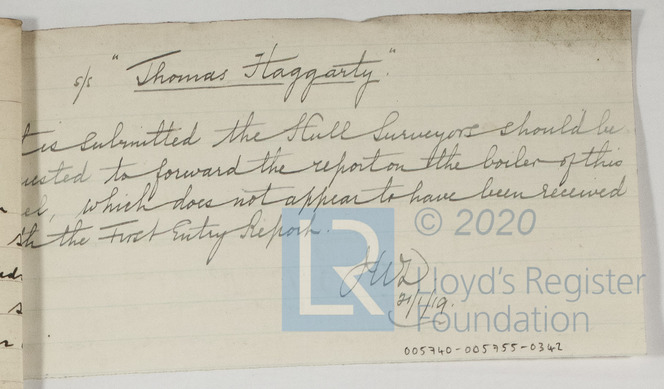 s/s "Thomas Haggarty."
t is submitted the Hull Surveyors should be
uested to forward the report on the boiler of this
el, which does not appear to have been received
th the First Entry Report.
21/1/19.
© 2020
LR
Lloyd's Register
Foundation
005740-005755-0342